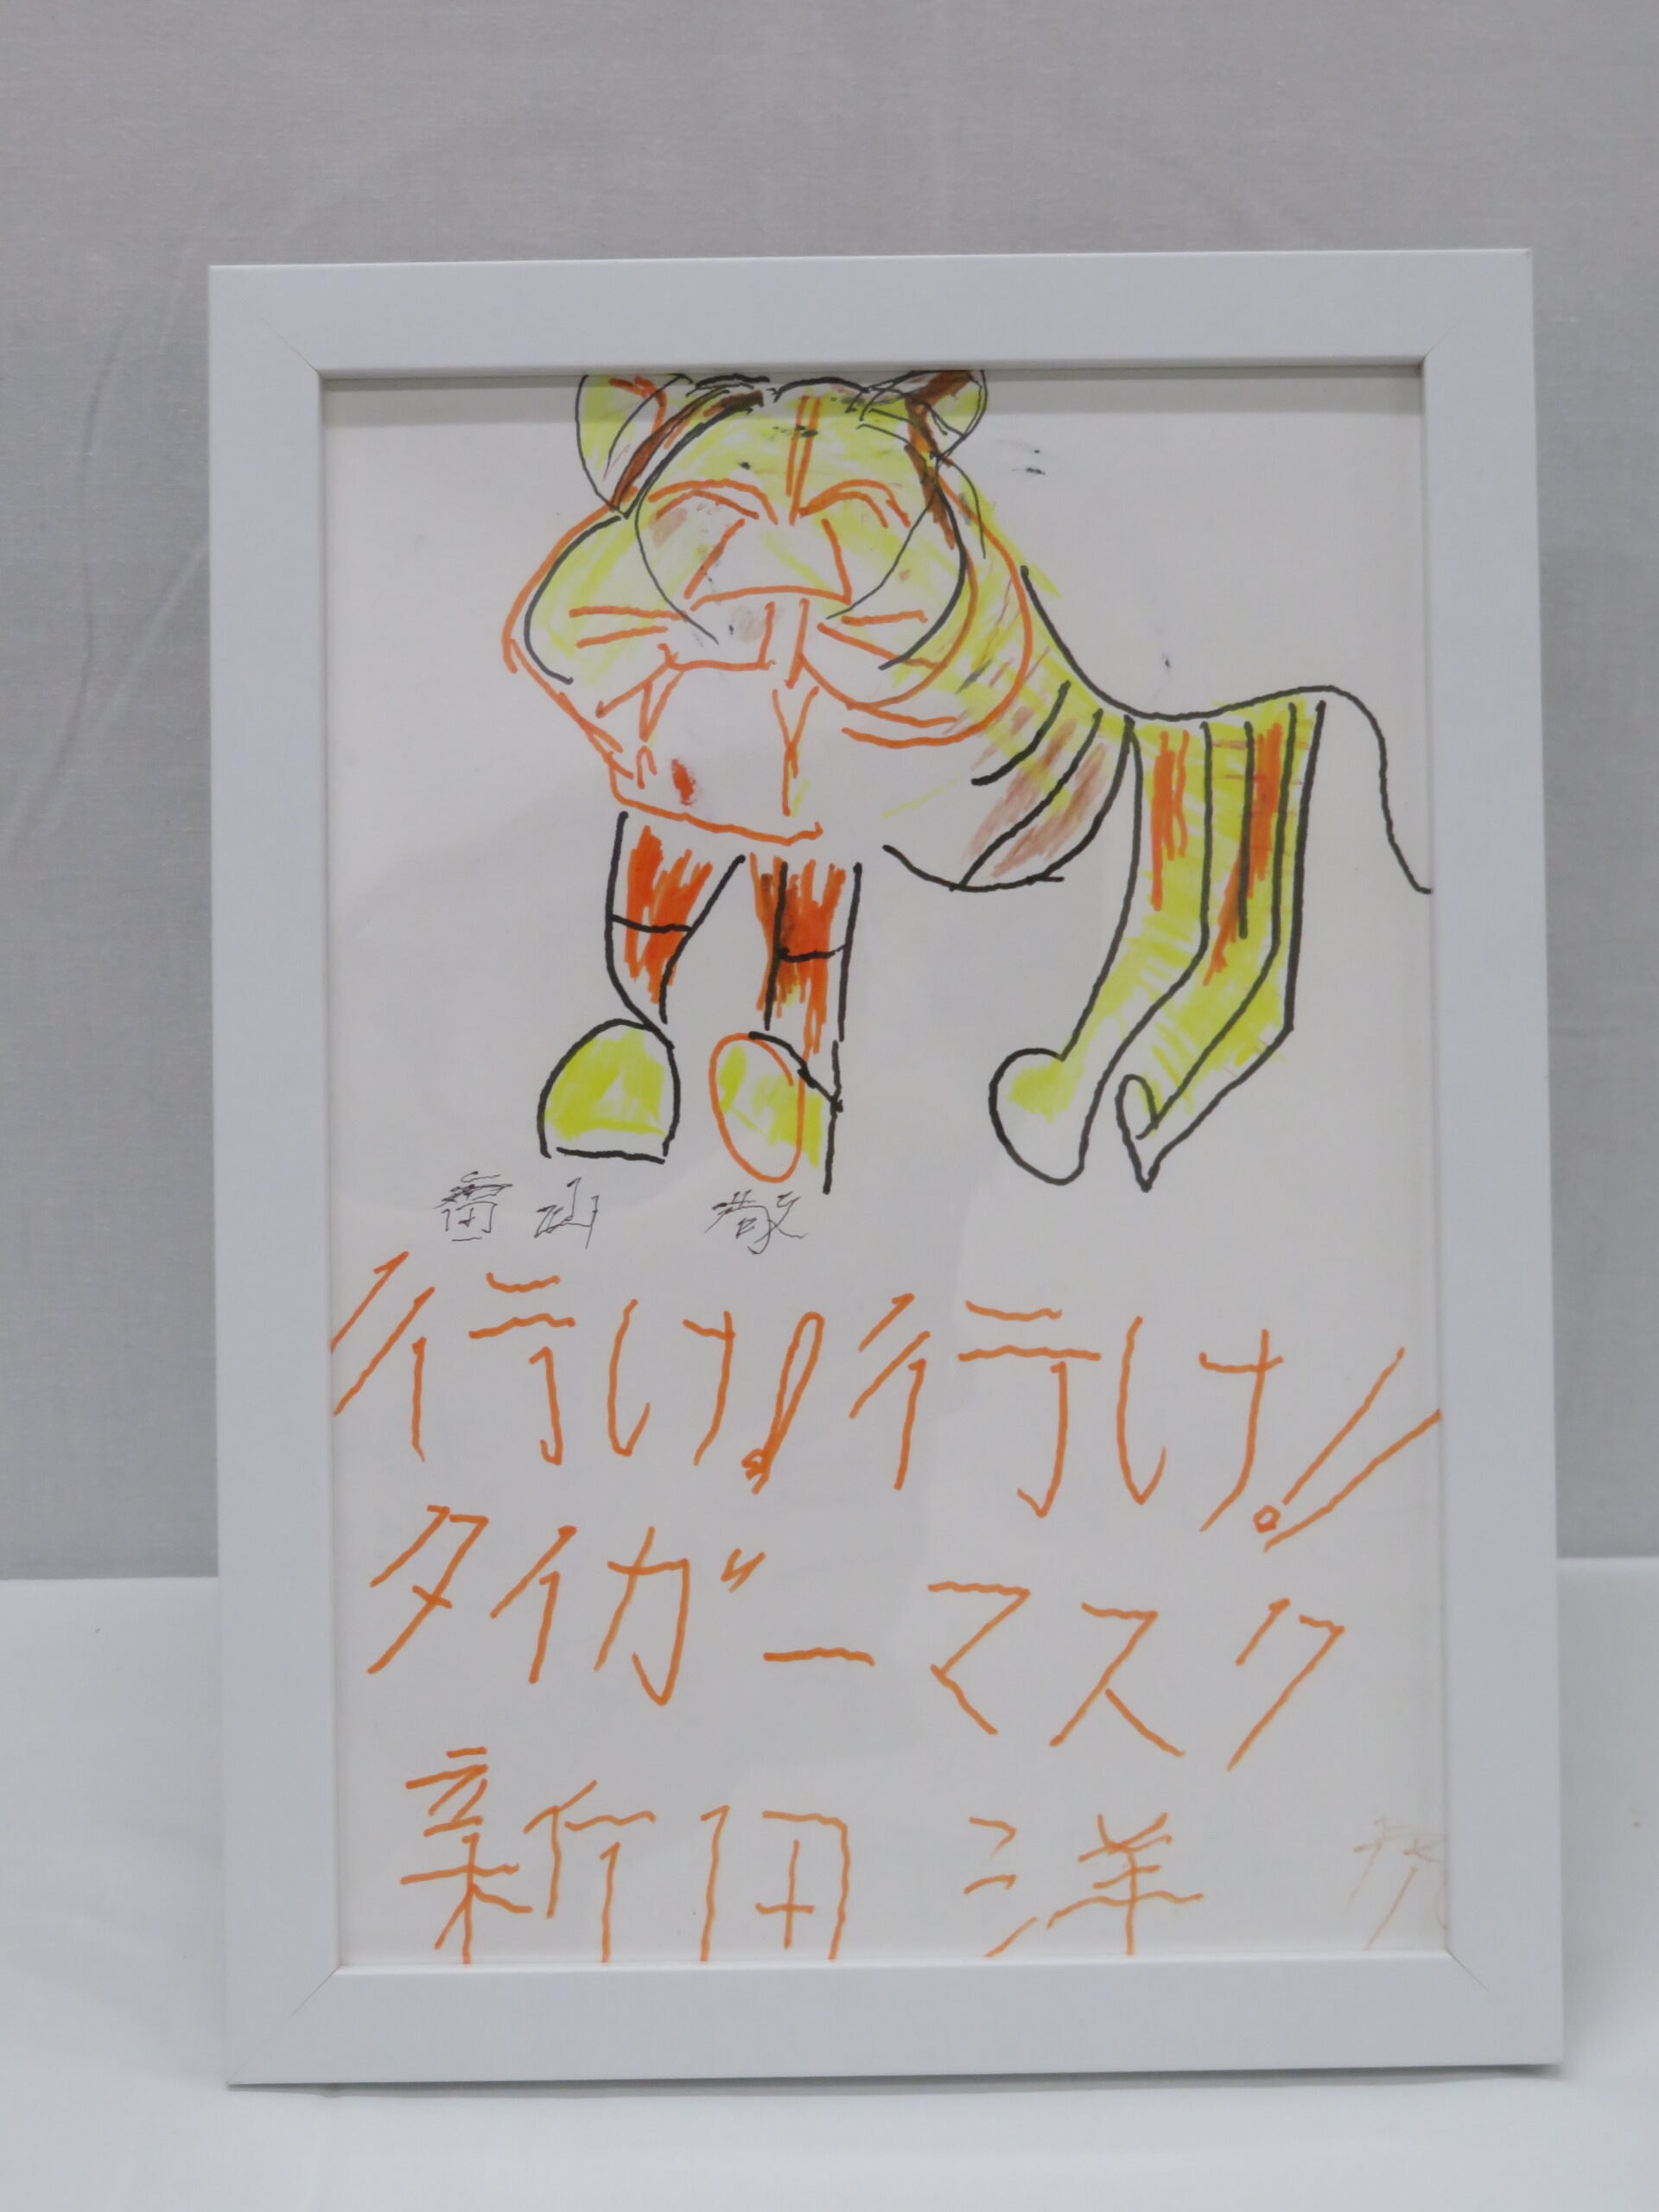 行け!行け!
タイガーマスク
新田 洋